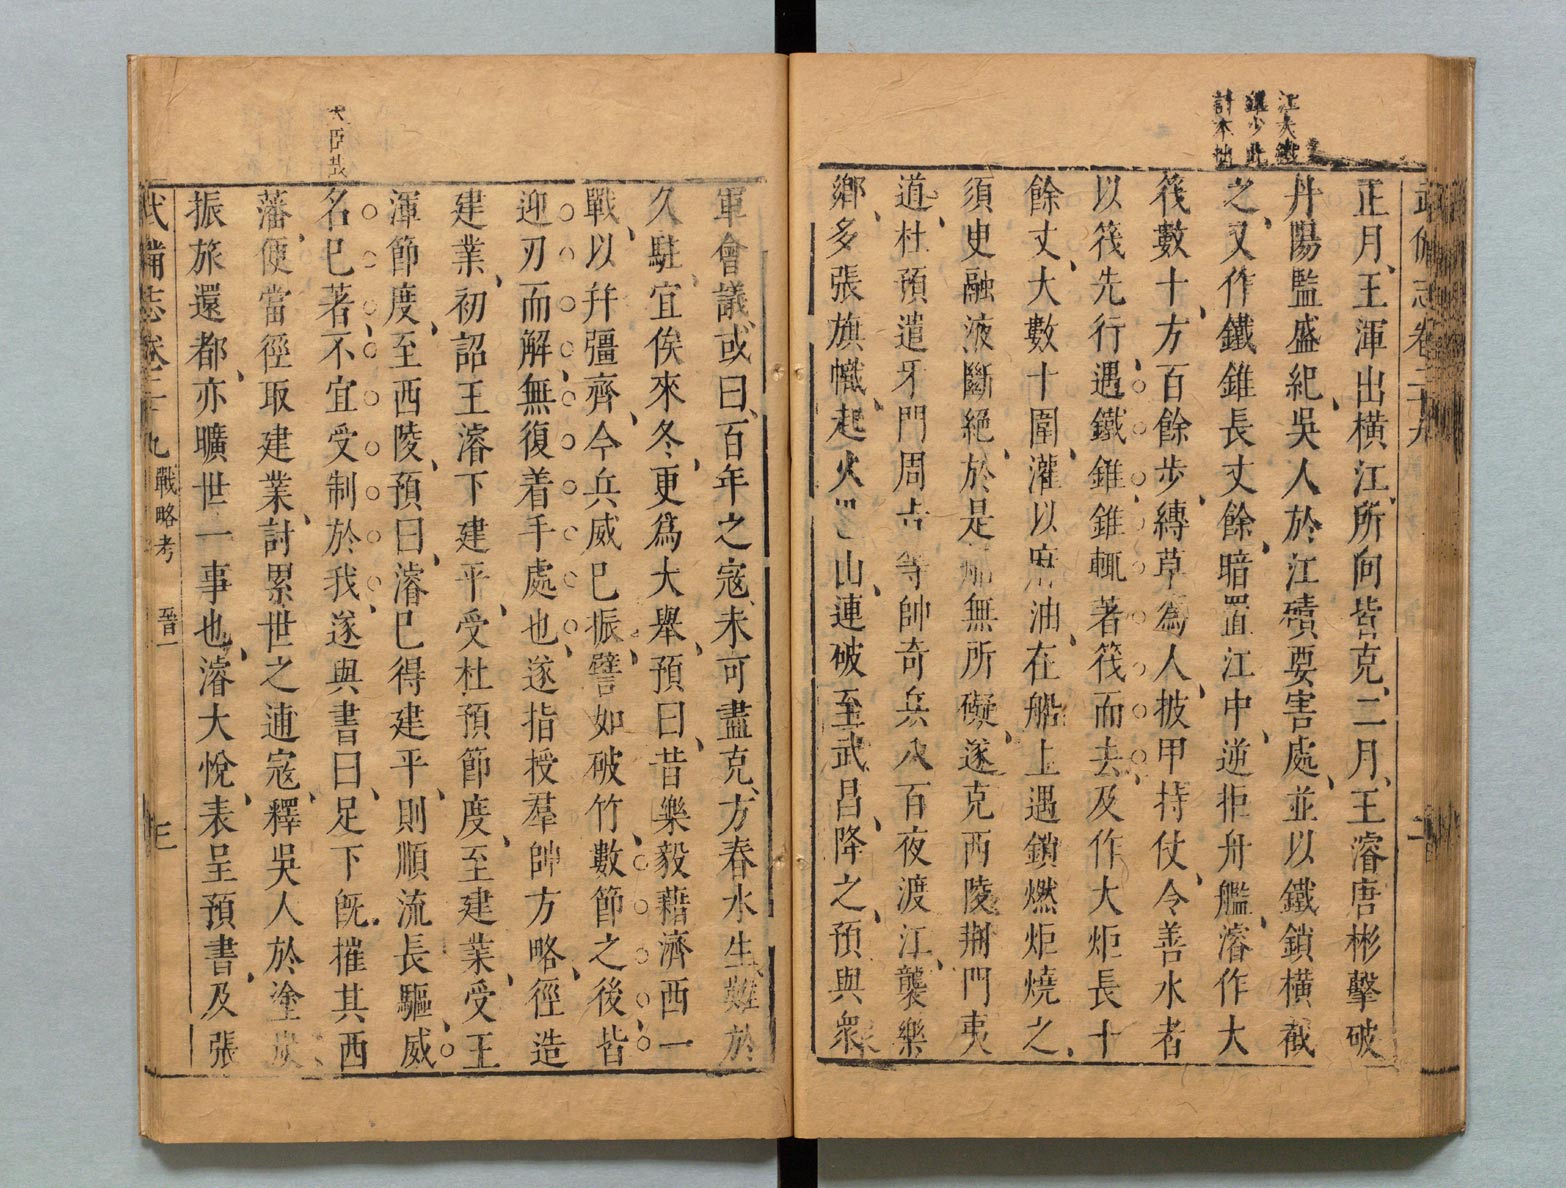 江夫鐵
鎖少此
計本拙
武備志卷二十九
二
正月、王渾出橫江、所向皆克、二月、王濬唐彬擊破
丹陽監盛紀、吳人於江磧要害處、並以鐵鎖橫截
之、又作鐵錐長丈餘、暗置江中、逆拒舟艦、濬作大
筏數十、方百餘步、縛草爲人、披甲持仗、令善水者
以筏先行、遇鐵錐錐輒著筏而去、及作大炬長十
餘丈、大數十圍、灌以麻油、在船上遇鎖燃炬燒之、
須史融液斷絕、於是船無所礙、遂克西陵荆門夷
道、杜預遣牙門周吉等帥奇兵八百夜渡江、襲樂
鄉、多張旗幟、起火山、連破至武昌、降之、預與衆
大臣哉
軍會議、或曰、百年之寇、未可盡克、方春水生難於
久駐、宜俟來冬、更爲大舉、預曰、昔樂毅藉濟西一
戰、以幷彊齊、今兵威已振、譬如破竹、數節之後、皆
迎刃而解、無復着手處也、遂指授羣帥方略、徑造
建業、初詔王濬下建平、受杜預節度、至建業、受王
渾節度、至西陵、預曰、濬已得建平、則順流長驅、威
名已著、不宜受制於我、遂與書曰、足下旣摧其西
藩、便當徑取建業、討累世之逋寇、釋吳人於塗炭、
振旅還都、亦曠世一事也、濬大悅、表呈預書、及張
武備志卷二十九 戰略考 晉一 三